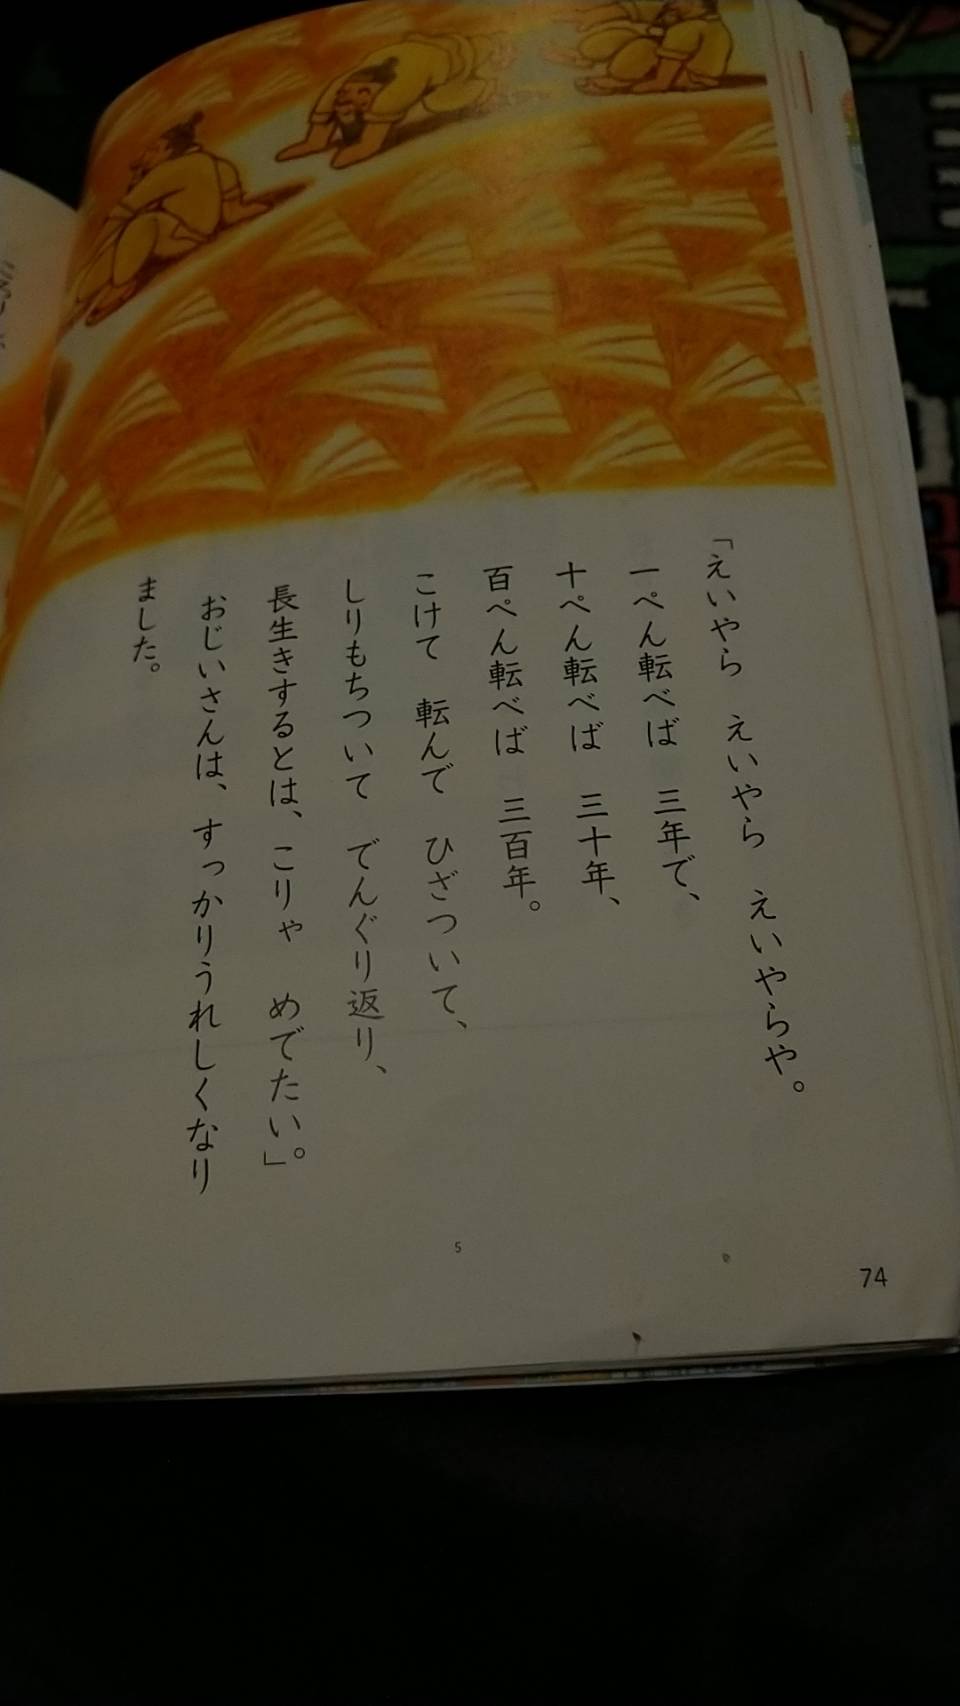 「えいやら　えいやら　えいやらや。
一ぺん転べば　三年で、
十ぺん転べば　三十年、
百ぺん転べば　三百年。
こけて　転んで　ひざついて、
しりもちついて　でんぐり返り、
長生きするとは、こりゃ　めでたい。」
おじいさんは、すっかりうれしくなり
ました。
5
74